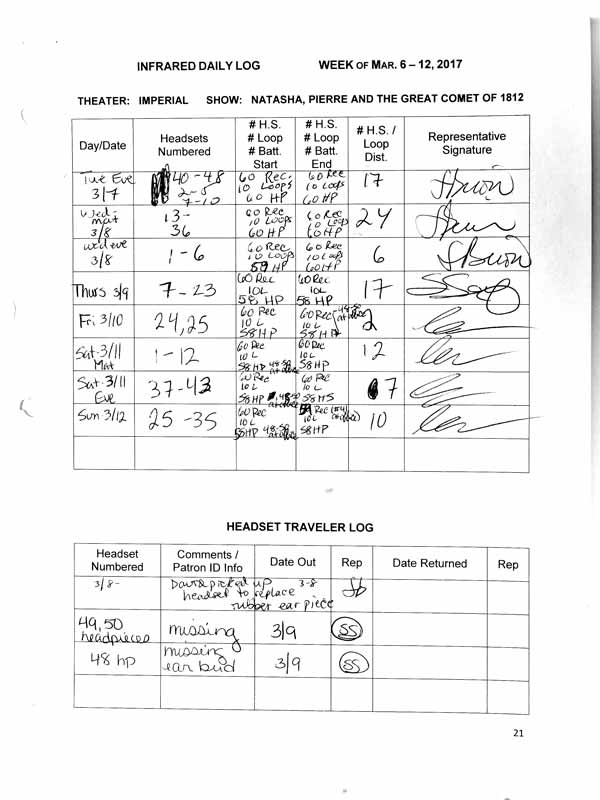 INFRARED DAILY LOG WEEK OF MAR. 6 – 12, 2017
THEATER: IMPERIAL SHOW: NATASHA, PIERRE AND THE GREAT COMET OF 1812
Day/Date Headsets Numbered # H.S. # Loop # Batt. Start # H.S. # Loop # Batt. End # H.S. / Loop Dist. Representative Signature
Tue Eve 3/7 40-48 2-5 7-10 60 Rec. 10 Loops 60 HP 60 Rec 10 Loops 60 HP 17
Wed-mat 3/8 13-36 60 Rec 10 Loops 60 HP 60 Rec 10 Loops 60 HP 24
wed eve 3/8 1-6 60 Rec 10 Loops 59 HP 60 Rec 10 Loops 60 HP 6
Thurs 3/9 7-23 60 Rec 10L 58 HP 60 Rec 10L 58 HP 17
Fri 3/10 24,25 60 Rec 10 L 58 HP 60 Rec 10 L 58 HP 2
Sat-3/11 Mat 1-12 60 Rec 10 L 58 HP 60 Rec 10 L 58 HP 12
Sat-3/11 Eve 37-43 60 Rec 10 L 58 HP 60 Rec 10 L 58 HS 7
Sun 3/12 25-35 60 Rec 10 L 58 HP Rec 10L 58 HP 10
HEADSET TRAVELER LOG
Headset Numbered Comments / Patron ID Info Date Out Rep Date Returned Rep
3/8- picked up headset to replace rubber ear piece 3-8
49,50 headpieces missing 3/9 SS
48 hp missing ear bud 3/9 SS
21